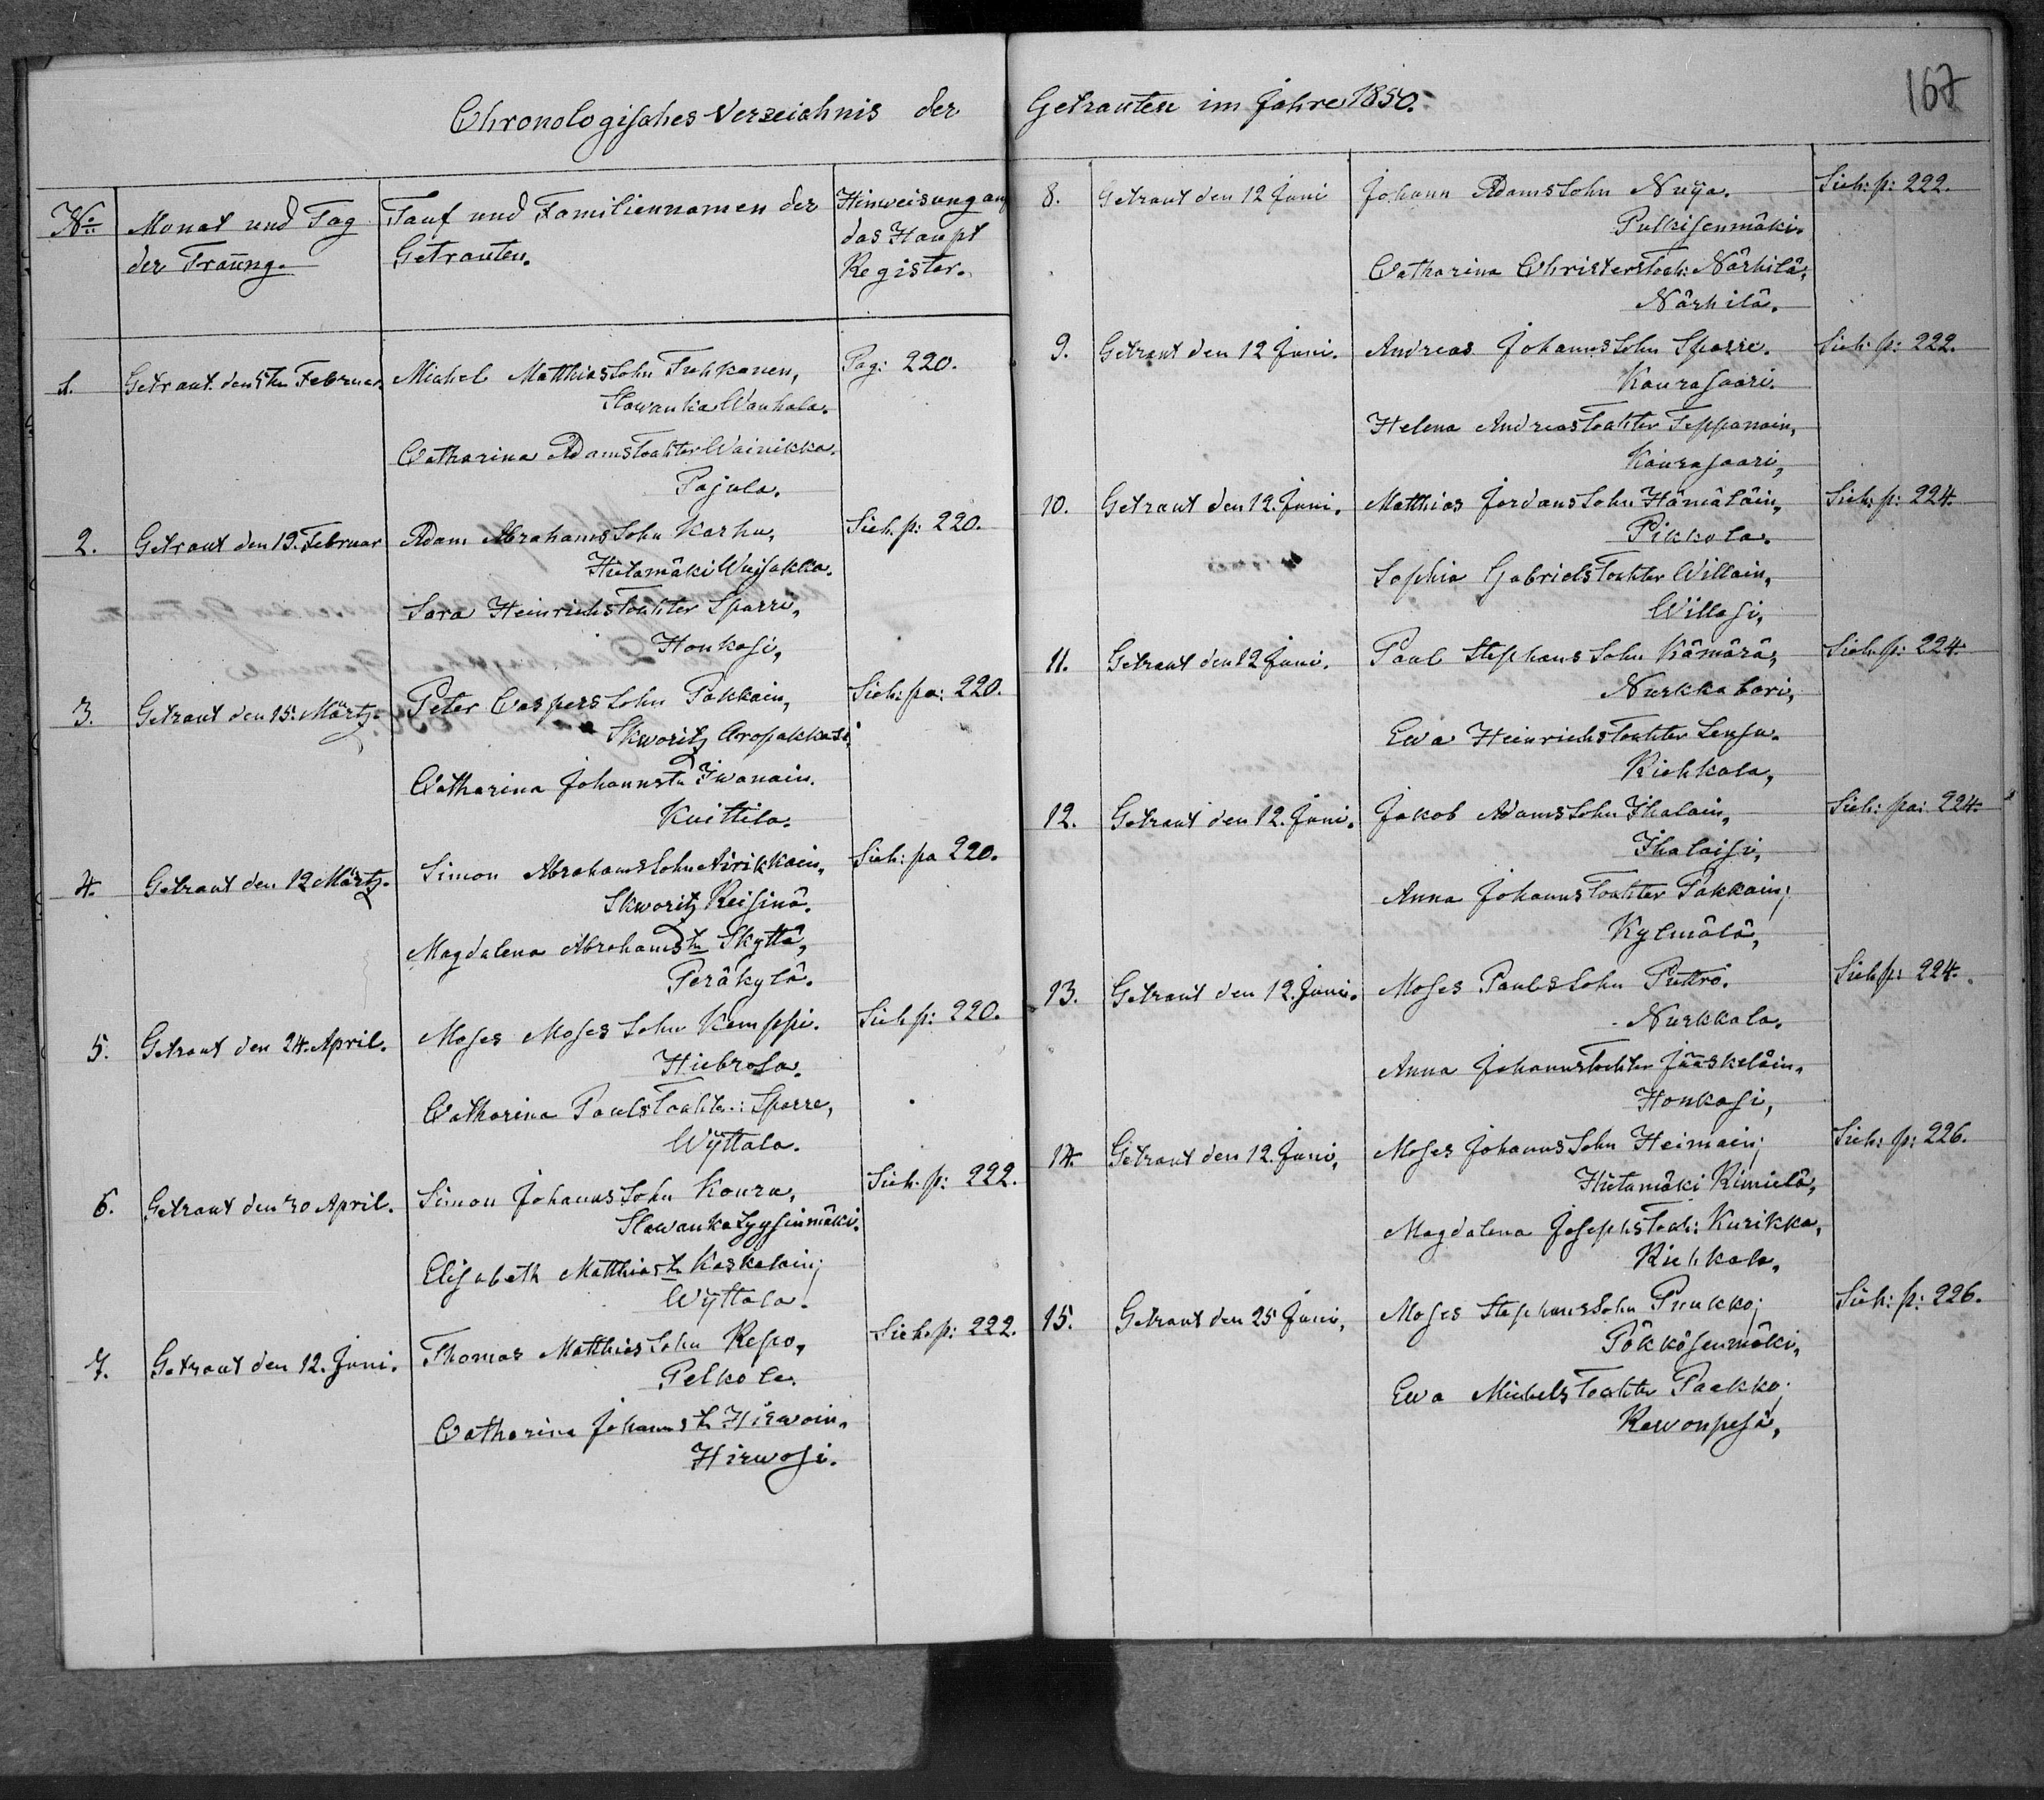 Chronologisches Verzeichnis der
Getrauten im Jahre 1850.
167
No
Monat und Tag
der Trauung.
Tauf und Familiennamen der
Getrauten.
Hinweisung auf
das Haupt
Register.
1. Getraut den 5ten Februar. Michel Matthiassohn Tuhkanen, Pag: 220.
Slawanka Wanhala.
Catharina Adamstochter Wainikka.
Pajula.
2. Getraut den 19. Februar Adam Abrahamssohn Karhu, Sieh. p: 220.
Hietamäki Wuisakka.
Sara Heinrichstochter Sparre,
Honkasi,
3. Getraut den 15. Märtz. Peter Casperssohn Pakkain, Sieh: pa: 220.
Skworitz Aropakkasi,
Catharina Johannstr Iwanain.
Kuittila.
4. Getraut den 12 Märtz. Simon Abrahamssohn Airikkain, Sieh: pa 220.
Skworitz Reisinä.
Magdalena Abrahamstr Skyttä,
Peräkylä.
5. Getraut den 24. April. Moses Mosessohn Kemppi. Sieh p: 220.
Hiebrola.
Catharina Paulstochter: Sparre,
Wÿttala.
6. Getraut den 30 April. Simon Johannssohn Koura, Sieh. p: 222.
Slawanka Lyysinmäki.
Elisabeth Matthiastr Kaskelain;
Wÿttala.
7. Getraut den 12. Juni. Thomas Matthiassohn Repo, Sieh. p: 222.
Pelkola.
Catharina Johannstr Hirwoin,
Hirwosi.
8. Getraut den 12 Juni Johann Adamssohn Nuija. Sieh: p: 222.
Pulkisenmäki.
Catharina Christerstoch: Närhilä,
Närhilä.
9. Getraut den 12 Juni. Andreas Johannssohn Sparre. Sieh: p: 222.
Kaurasaari.
Helena Andreastochter Teppanain,
Kaurasaari,
10. Getraut den 12. Juni. Matthias Jordanssohn Hämäläin, Sieh: p: 224.
Pikkola.
Sophia Gabrielstochter Willain,
Willasi,
11. Getraut den 12 Juni. Paul Stephanssohn Kämärä, Sieh p: 224.
Nurkka
Ewa Heinrichstochter Lensu.
Kiehkala,
12. Getraut den 12. Juni. Jakob Adamssohn Ihalain, Sieh: pa: 224.
Ihalaisi,
Anna Johannstochter Pakkain;
Kylmälä,
13. Getraut den 12. Juni. Moses Paulssohn Sieh p: 224.
Nurkkala.
Anna Johannstochter Jääskeläin.
Honkasi,
14. Getraut den 12. Juni, Moses Johannssohn Heimain; Sieh: p: 226.
Hietamäki Kimielä,
Magdalena Josephstoch: Kurikka,
Kiehkala,
15. Getraut den 25 Juni, Moses Stephanssohn Puukko; Sieh: p: 226.
Pökkösenmäki,
Ewa Michelstochter Paakko;
Rewonpesä,